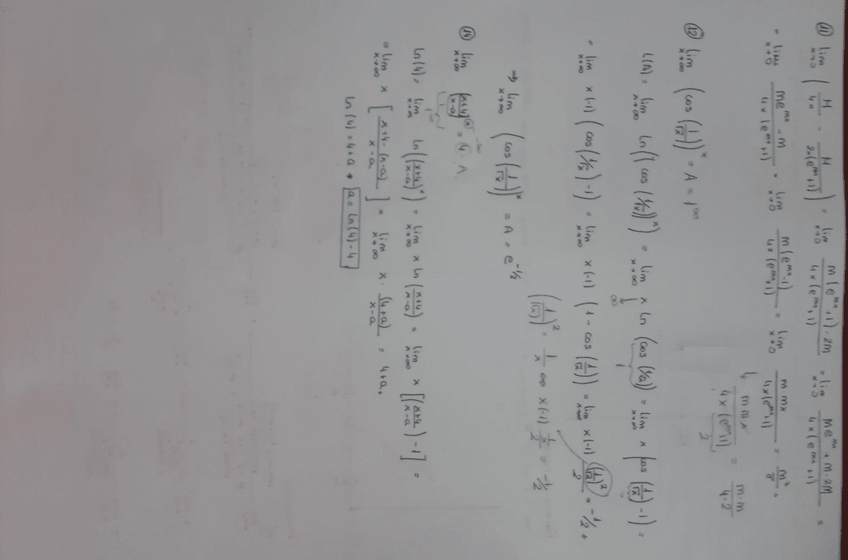 ⑪ lim x→0 (M/4x − M/2x(e^mx+1)) = lim x→0 m(e^mx+1)-2m / 4x(e^mx+1) = lim x→0 me^mx+m-2m / 4x(e^mx+1) =
= lim x→0 me^mx-m / 4x(e^mx+1) = lim x→0 m(e^mx-1) / 4x(e^mx+1) = lim x→0 m mx / 4x(e^mx+1) = m²/8 =
↳ m m x / 4x(e^mx+1) 2 = m·m / 4·2
⑫ lim x→∞ (cos(1/√x))^x = A = 1^∞
L(A) = lim x→∞ ln((cos(1/√x))^x) = lim x→∞ x ln(cos(1/√x)) = lim x→∞ x (cos(1/√x) -1) =
∞ 1
= lim x→∞ x(-1)(cos(1/√x)-1) = lim x→∞ x(-1) (1-cos(1/√x)) = lim x→∞ x(-1) (1/√x)²/2 = -1/2.
(1/√x)² = 1/x ∞ x(-1) 1/x/2 = -1/2
→ lim x→∞ (cos(1/√x))^x = A = e^-1/2
⑭ lim x→∞ (x+4/x-a)^x = 4 A
ln(4) = lim x→∞ ln((x+4/x-a)^x) = lim x→∞ x ln(x+4/x-a) = lim x→∞ x [(x+4/x-a) -1] =
= lim x→∞ x [x+4-(x-a) / x-a] = lim x→∞ x · (4+a)/x-a = 4+a.
ln(4) = 4+a → a = ln(4)-4